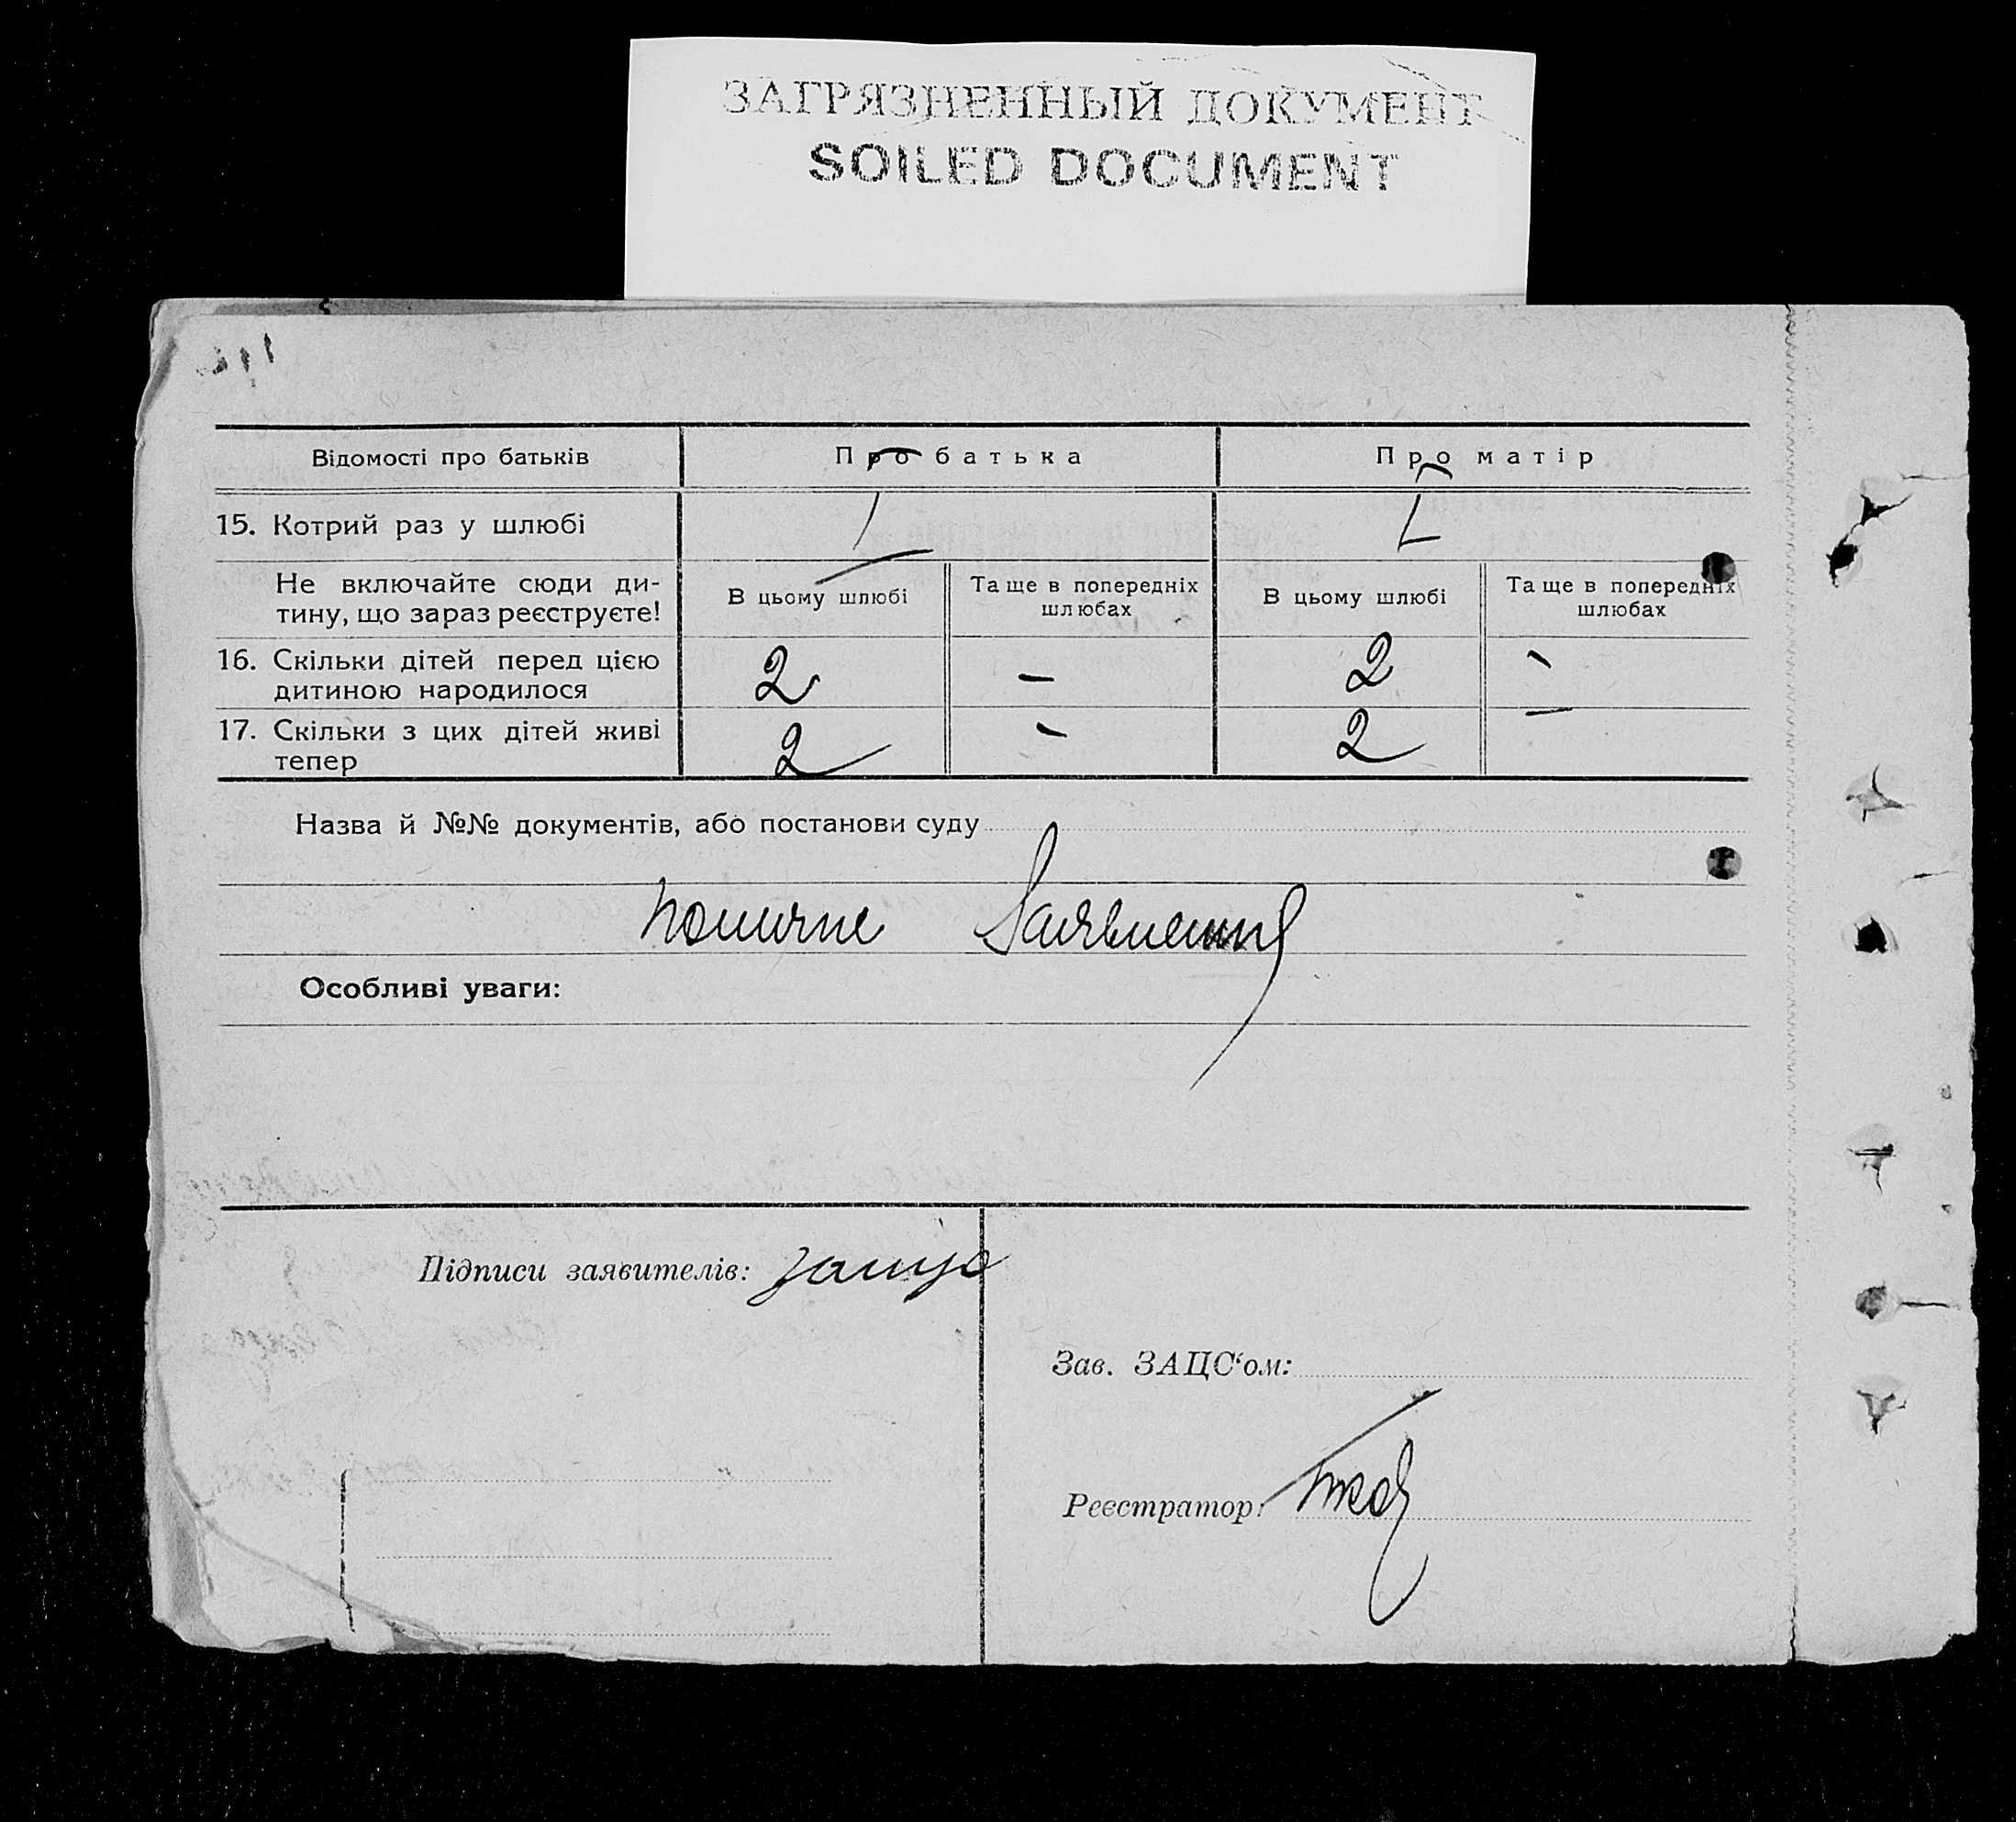 ЗАГРЯЗНЕННЫЙ ДОКУМЕНТ
SOILED DOCUMENT
Відомості про батьків
Про батька
Про матір
15. Котрий раз у шлюбі
I
I
Не включайте сюди ди-
тину, що зараз реєструєте!
В цьому шлюбі
Та ще в попередніх
шлюбах
В цьому шлюбі
Та ще в попередніх
шлюбах
16. Скільки дітей перед цією
дитиною народилося
2 – 2 –
17. Скільки з цих дітей живі
тепер
2 – 2 –
Назва й №№ документів, або постанови суду
Особливі уваги:
Підписи заявителів:
Зав. ЗАЦС‘ом:
Реєстратор: